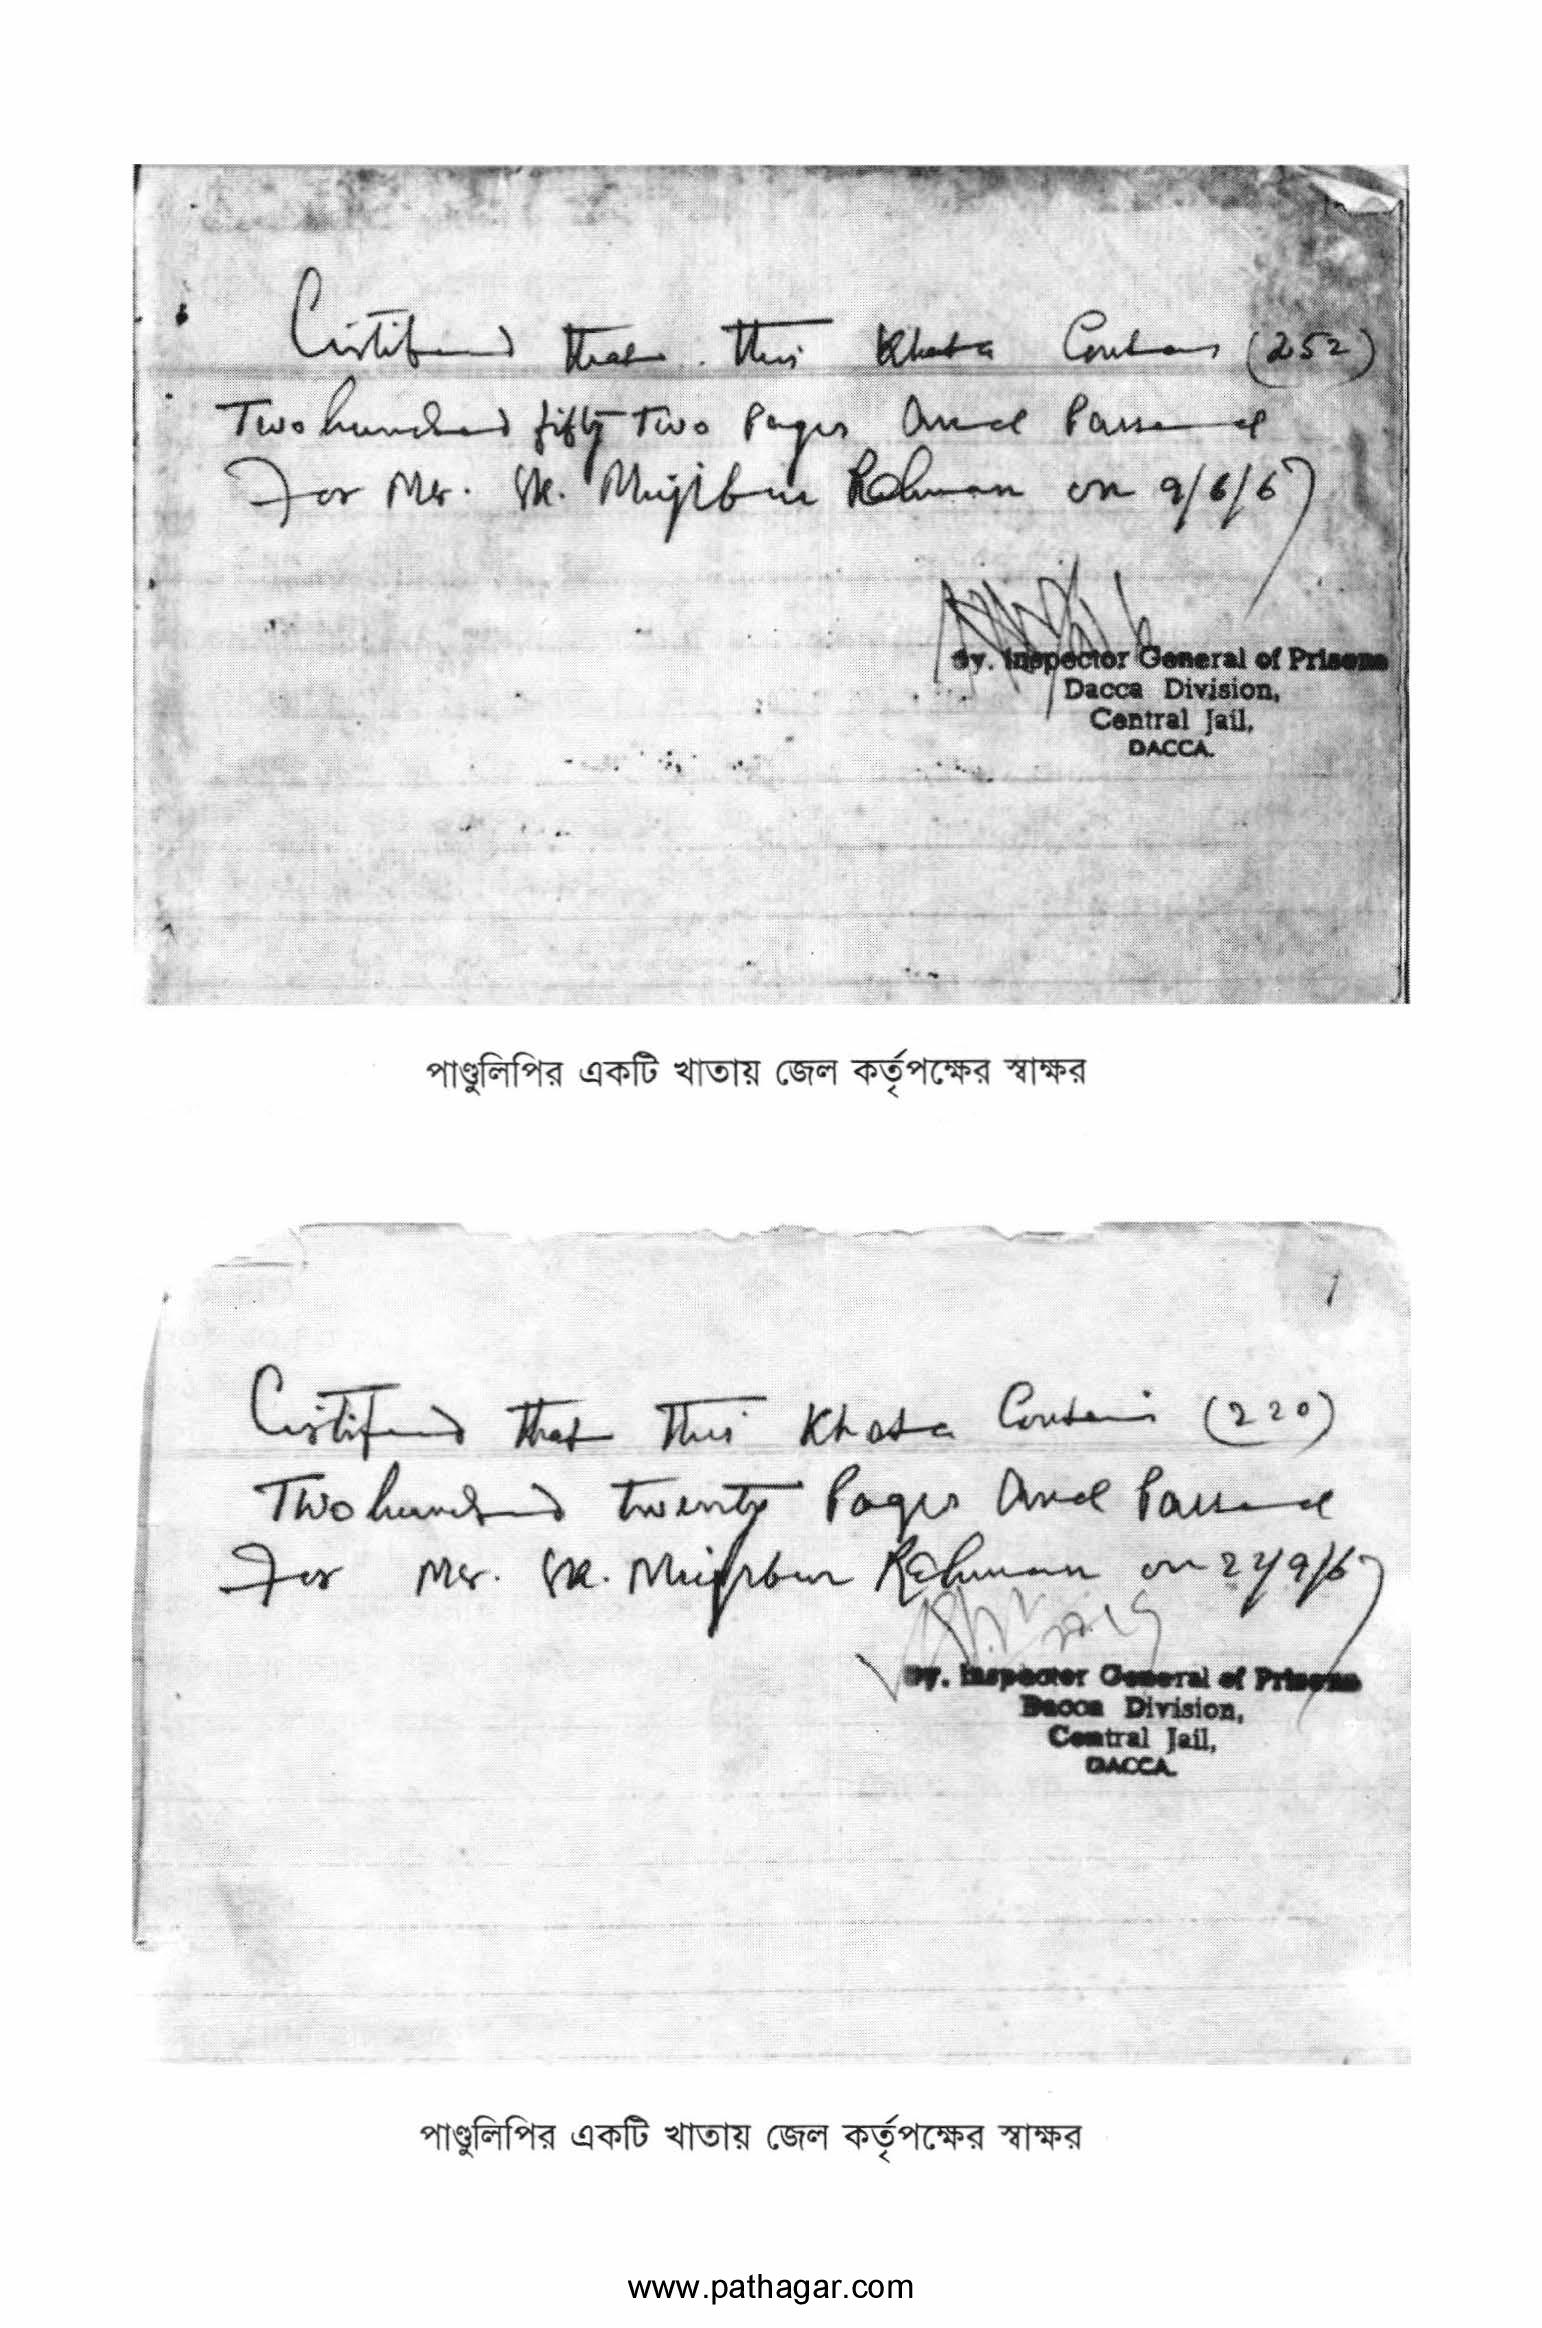 Certified that this Khata Contains (252)
Two hundred fifty Two Pages and Passed
For Mr. Sk. Mujibur Rahman on 9/6/67
Dy. Inspector General of Prisons
Dacca Division,
Central Jail,
DACCA.
পাণ্ডুলিপির একটি খাতায় জেল কর্তৃপক্ষের স্বাক্ষর
1
Certified that this Khata Contains (220)
Two hundred twenty Pages and Passed
For Mr. Sk. Mujibur Rahman on 22/9/67
Dy. Inspector General of Prisons
Dacca Division,
Central Jail,
DACCA.
পাণ্ডুলিপির একটি খাতায় জেল কর্তৃপক্ষের স্বাক্ষর
www.pathagar.com